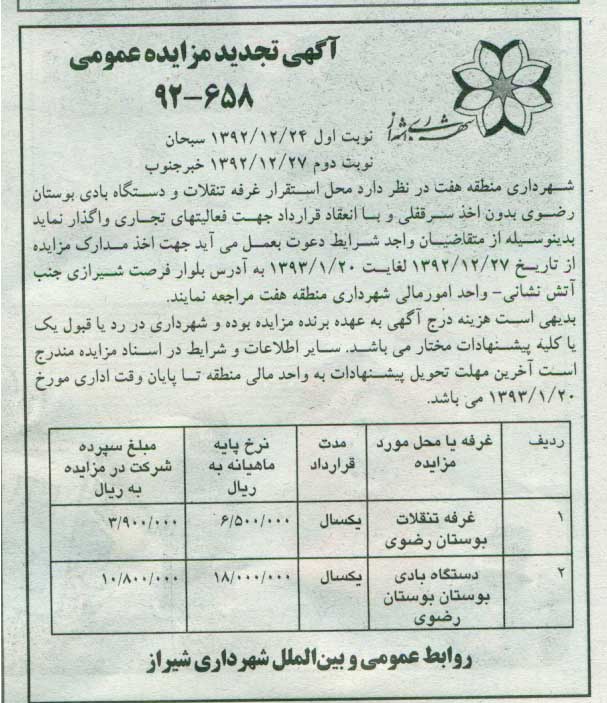 آگهی تجدید مزایده عمومی
۹۲-۶۵۸
شهرداری شیراز
نوبت اول ۱۳۹۲/۱۲/۲۴ سبحان
نوبت دوم ۱۳۹۲/۱۲/۲۷ خبرجنوب
شهرداری منطقه هفت در نظر دارد محل استقرار غرفه تنقلات و دستگاه بادی بوستان
رضوی بدون اخذ سرقفلی و با انعقاد قرارداد جهت فعالیتهای تجاری واگذار نماید
بدینوسیله از متقاضیان واجد شرایط دعوت بعمل می آید جهت اخذ مدارک مزایده
از تاریخ ۱۳۹۲/۱۲/۲۷ لغایت ۱۳۹۳/۱/۲۰ به آدرس بلوار فرصت شیرازی جنب
آتش نشانی- واحد امورمالی شهرداری منطقه هفت مراجعه نمایند.
بدیهی است هزینه درج آگهی به عهده برنده مزایده بوده و شهرداری در رد یا قبول یک
یا کلیه پیشنهادات مختار می باشد. سایر اطلاعات و شرایط در اسناد مزایده مندرج
است آخرین مهلت تحویل پیشنهادات به واحد مالی منطقه تا پایان وقت اداری مورخ
۱۳۹۳/۱/۲۰ می باشد.
ردیف غرفه یا محل مورد مدت نرخ پایه مبلغ سپرده
مزایده قرارداد ماهیانه به شرکت در مزایده
ریال به ریال
۱ غرفه تنقلات یکسال ۶/۵۰۰/۰۰۰ ۳/۹۰۰/۰۰۰
بوستان رضوی
۲ دستگاه بادی یکسال ۱۸/۰۰۰/۰۰۰ ۱۰/۸۰۰/۰۰۰
بوستان بوستان
رضوی
روابط عمومی و بین‌الملل شهرداری شیراز